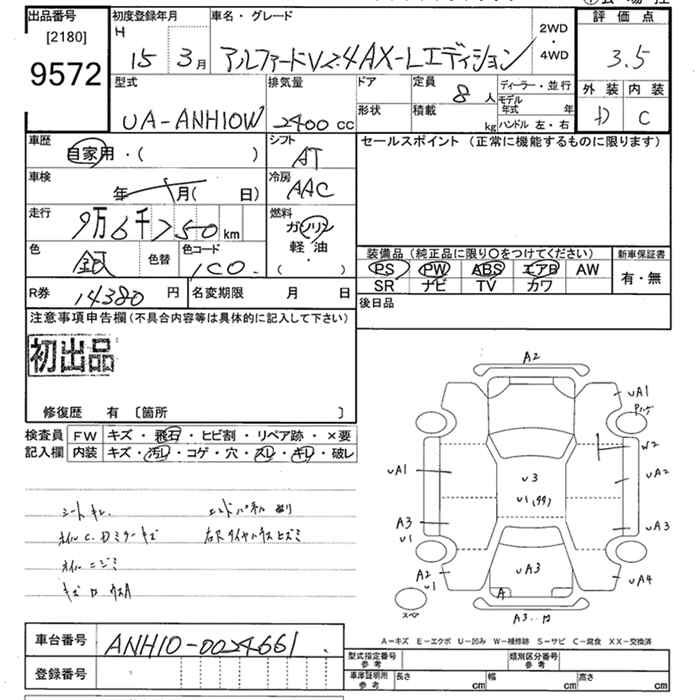 出品番号
[2180]
9572
初度登録年月
H
15 3月
車名・グレード
アルファードV 2.4 AX-Lエディション
2WD
・
4WD
評価点
3.5
外装 内装
D C
型式
UA-ANH10W
排気量
2400 cc
ドア
形状
定員
8人
積載
kg
ディーラー・並行
モデル年式 年
ハンドル 左・右
車歴
自家用・( )
シフト
AT
車検
年 月( 日)
冷房
AAC
走行
9万6千750km
燃料
ガソリン
軽油
( )
色
銀
色替
色コード
1C0
R券 14380円
名変期限 月 日
セールスポイント (正常に機能するものに限ります)
装備品 (純正品に限り○をつけてください)
新車保証書
PS PW ABS エアB AW
SR ナビ TV カワ
有・無
後日品
注意事項申告欄(不具合内容等は具体的に記入して下さい)
初出品
修復歴 有 〔箇所 〕
検査員
記入欄
FW キズ・飛石・ヒビ割・リペア跡・×要
内装 キズ・汚レ・コゲ・穴・スレ・キレ・破レ
シートキレ
A2
UA1
W2
UA1
UA2
U3
U1
A3
U1
UA3
A2
U1
UA3
UA4
A
A3
スペア
車台番号 ANH10-0024661
登録番号
A-キズ E-エクボ U-凹み W-補修跡 S-サビ C-腐食 XX-交換済
型式指定番号
参考
類別区分番号
参考
車庫証明用
参考
長さ cm
幅 cm
高さ cm